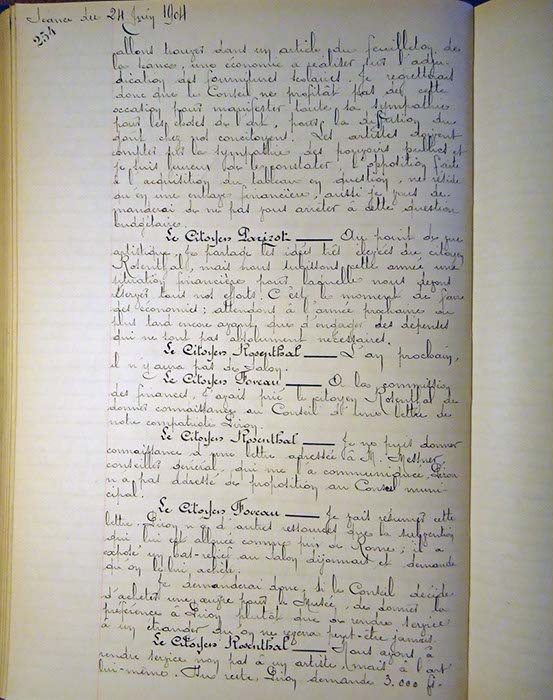 Séance du 24 Juin 1904
234
allons trouver dans un article du feuilleton de
la séance, une économie à réaliser sur l'adju-
dication des fournitures scolaires. Je regretterais
donc que le Conseil ne profitât pas de cette
occasion pour manifester toute sa sympathie
pour les choses de l'art, pour la diffusion du
goût chez nos concitoyens. Les artistes doivent
compter sur la sympathie des pouvoirs publics et
je suis heureux de constater l'opposition faite
à l'acquisition du tableau en question, ne réside
qu'en une entrave financière, aussi je vous de-
manderai de ne pas vous arrêter à cette question
budgétaire.
Le Citoyen Parizot — Au point de vue
artistique je partage les idées très élevées du citoyen
Rosenthal, mais nous subissons cette année une
situation financière pour laquelle nous devons
réserver tous nos efforts. C'est le moment de faire
des économies; attendons à l'année prochaine ou
plus tard encore avant que d'engager des dépenses
qui ne sont pas absolument nécessaires.
Le Citoyen Rosenthal — L'an prochain,
il n'y aura pas de Salon.
Le Citoyen Foveau — A la commission
des finances, j'avais prié le citoyen Rosenthal de
donner connaissance au Conseil d'une lettre de
notre compatriote Piron.
Le Citoyen Rosenthal — Je ne puis donner
connaissance d'une lettre adressée à M. Messner,
conseiller général, qui me l'a communiquée. Piron
n'a pas adressé de proposition au Conseil muni-
cipal.
Le Citoyen Foveau — Je vais résumer cette
lettre. Piron n'a d'autres ressources que la subvention
qui lui est allouée comme prix de Rome; il a
exposé un bas-relief au Salon dijonnais et demande
qu'on le lui achète.
Je demanderai donc, si le Conseil décide
d'acheter une œuvre pour le Musée, de donner la
préférence à Piron plutôt que de rendre service
à un étranger qu'on ne reverra peut-être jamais.
Le Citoyen Rosenthal — Nous avons à
rendre service non pas à un artiste mais à l'art
lui-même. Du reste, Piron demande 3.000 fr.